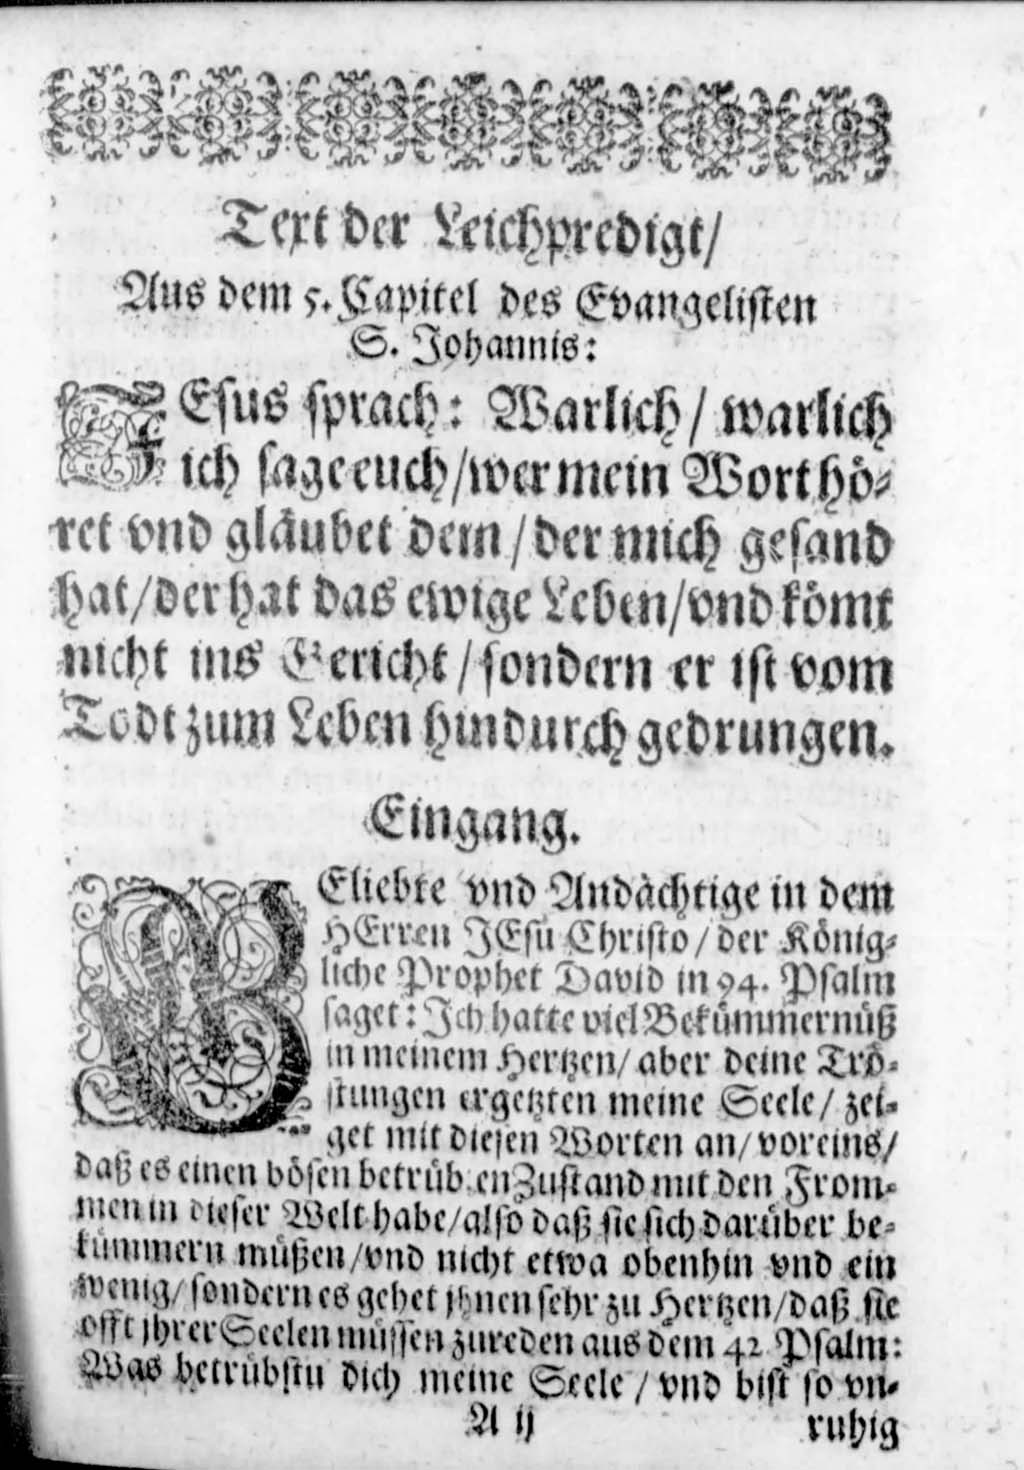 Text der Leichpredigt/
Aus dem 5. Capitel des Evangelisten
S. Johannis:
JEsus sprach: Warlich/ warlich
ich sage euch/ wer mein Wort hö-
ret vnd gläubet dem/ der mich gesand
hat/ der hat das ewige Leben/ vnd kömt
nicht ins Gericht/ sondern er ist vom
Todt zum Leben hindurch gedrungen.
Eingang.
GEliebte vnd Andächtige in dem
HErren JEsu Christo/ der König-
liche Prophet David in 94. Psalm
saget: Ich hatte viel Bekümmernüß
in meinem Hertzen/ aber deine Trö-
stungen ergetzten meine Seele/ zei-
get mit diesen Worten an/ voreins/
daß es einen bösen betrübten Zustand mit den From-
men in dieser Welt habe/ also daß sie sich darüber be-
kümmern müßen/ vnd nicht etwa obenhin vnd ein
wenig/ sondern es gehet jhnen sehr zu Hertzen/ daß sie
offt jhrer Seelen müssen zureden aus dem 42 Psalm:
Was betrübstu dich meine Seele/ vnd bist so vn-
A ij
ruhig